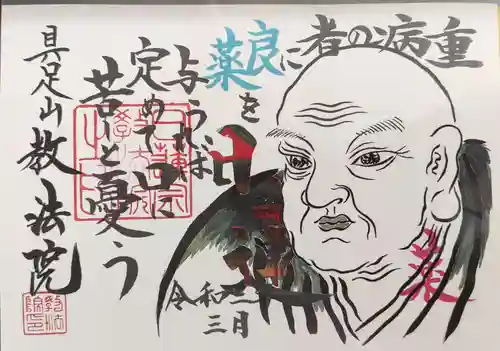 重病の者に
良薬を
与うれば
定めて口に
苦しと憂う
令和三
三月
具足山教法院
薬